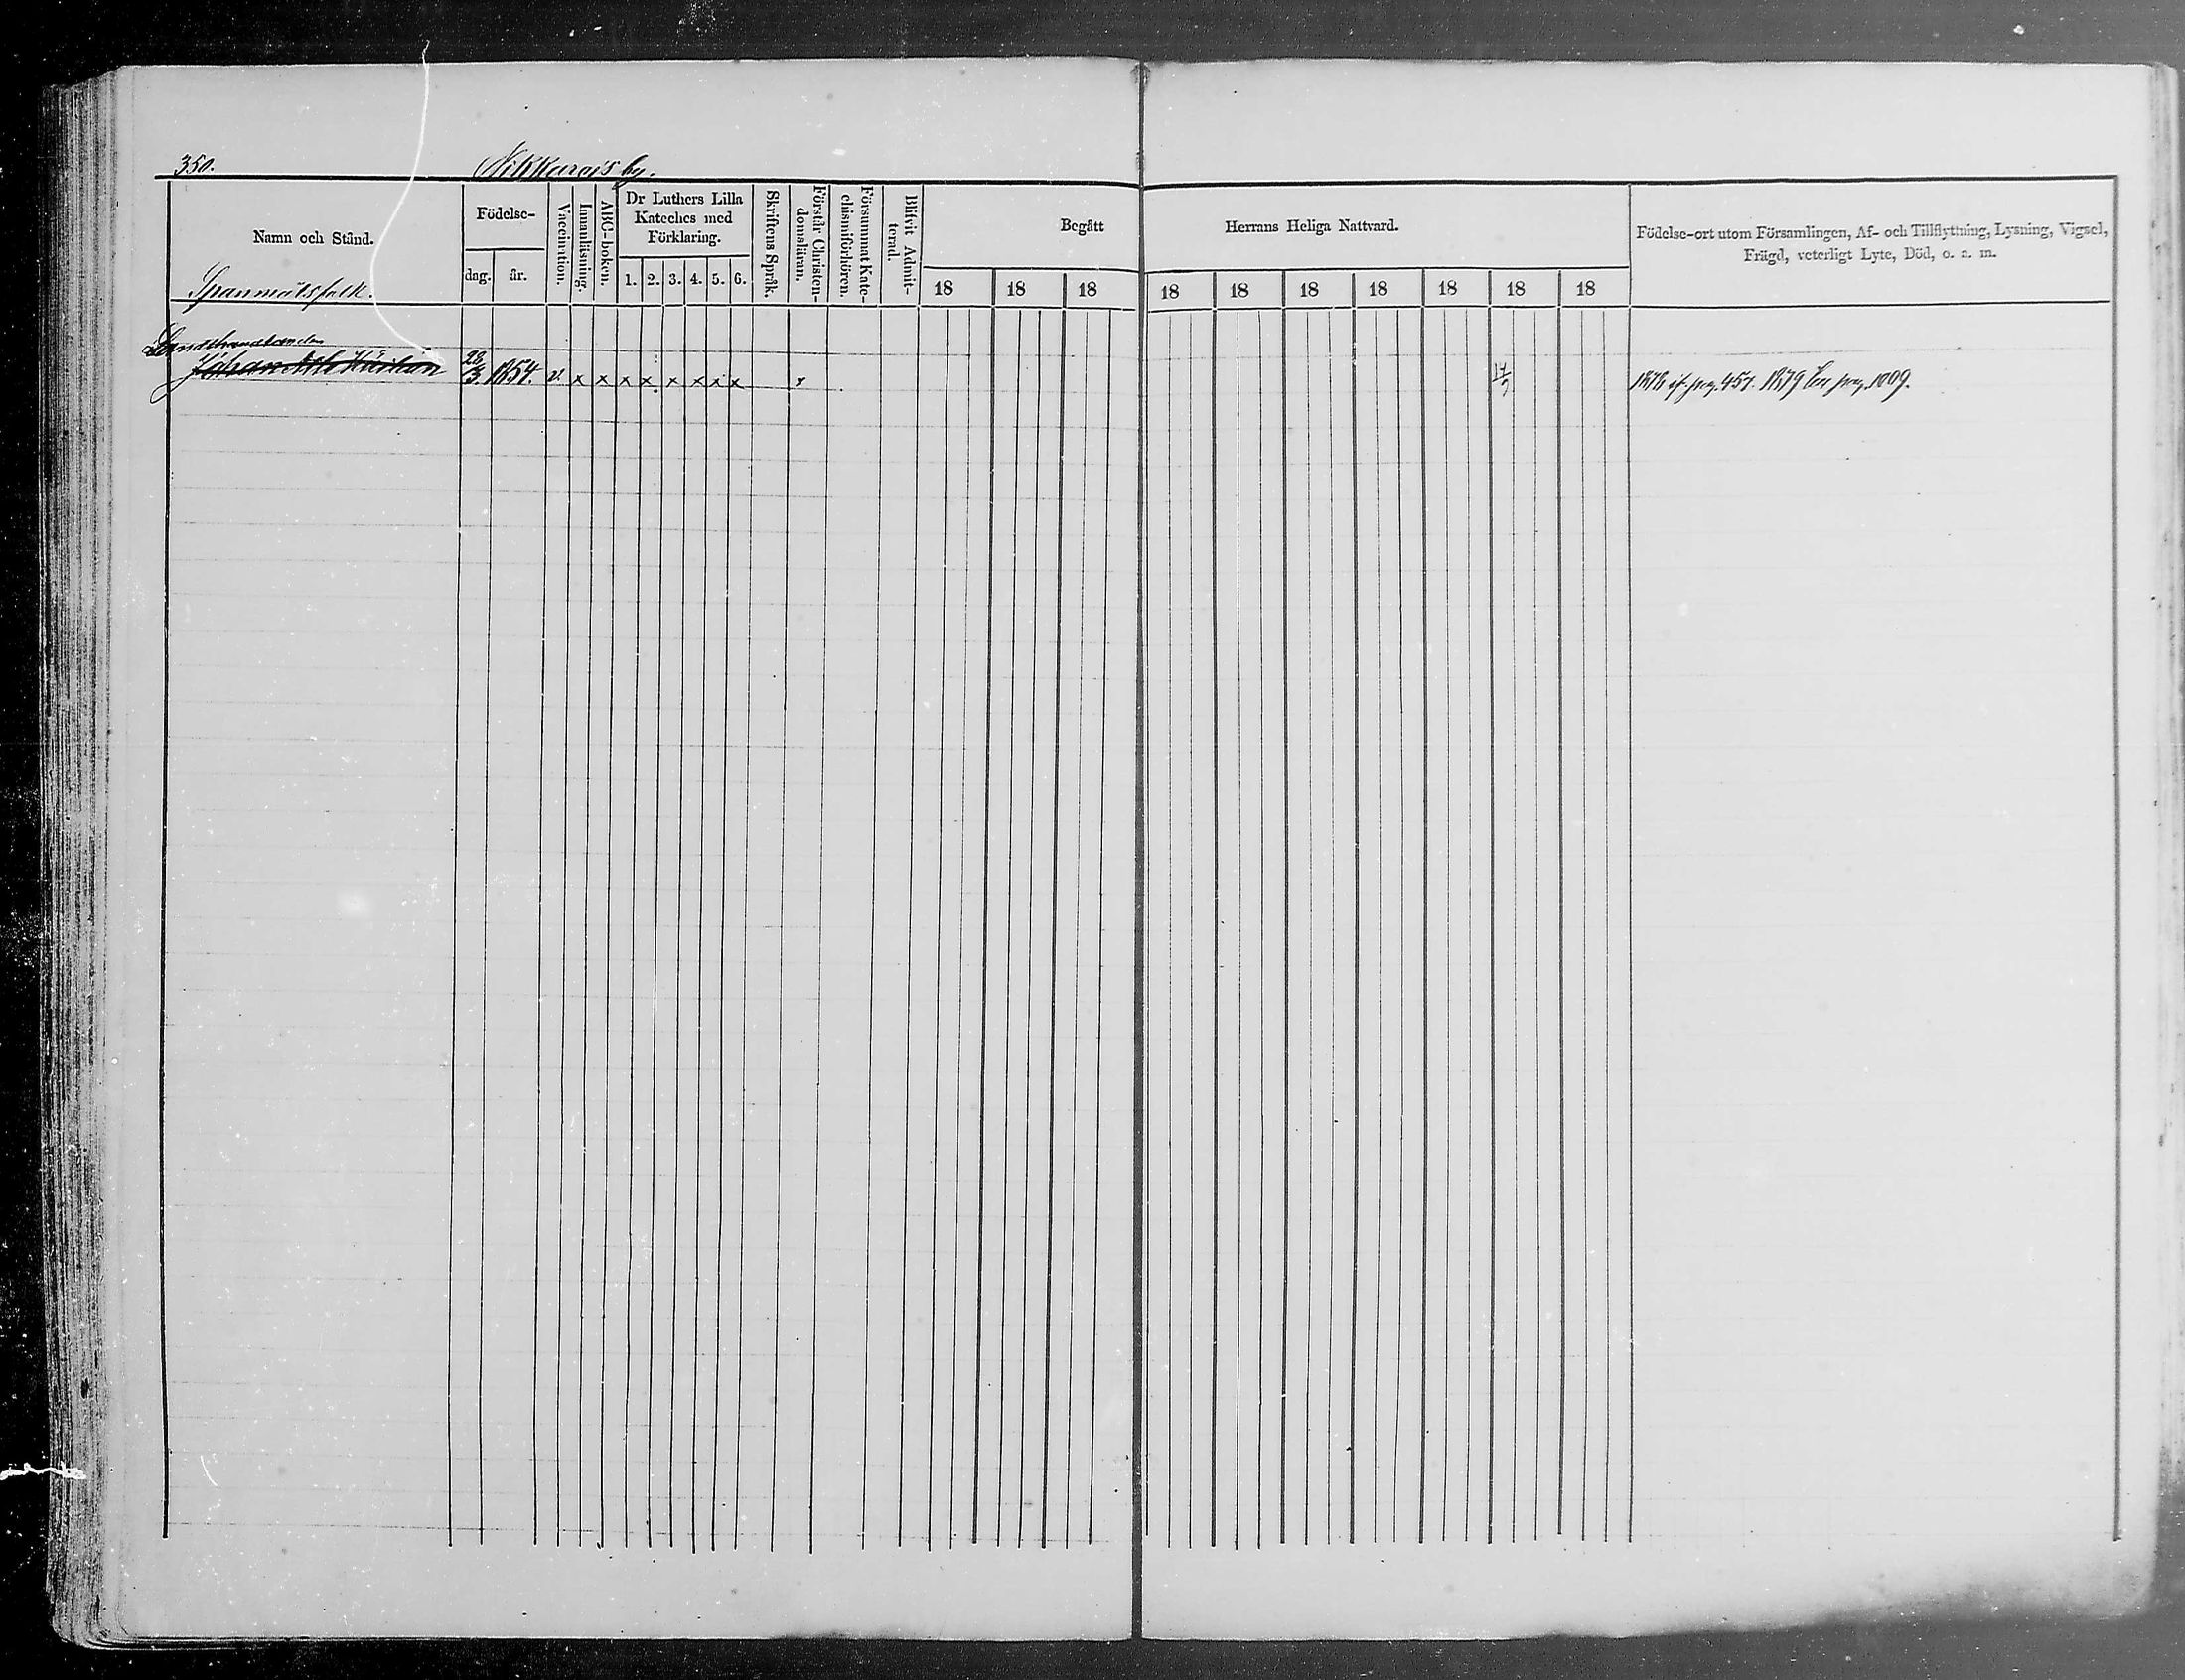 350. Nikkarajs by.
Namn och Stånd.
Spanmålsfolk.
Födelse-
dag. år.
Vaccination.
Innanläsning.
ABC-boken.
Dr Luthers Lilla
Kateches med
Förklaring.
1. 2. 3. 4. 5. 6.
Skriftens Språk.
Förstår Christen-
domsläran.
Försummat Kate-
chismiförhören.
Blifvit Admit-
terad.
Begått Herrans Heliga Nattvard.
18 18 18 18 18 18 18 18 18 18
Födelse-ort utom Församlingen, Af- och Tillflyttning, Lysning, Vigsel,
Frägd, veterligt Lyte, Död, o. a. m.
Landthandlanden
Johan 28/3. 1854. v. x x x x x x x x 1878 if. pag. 451. 1879 pag. 1009.